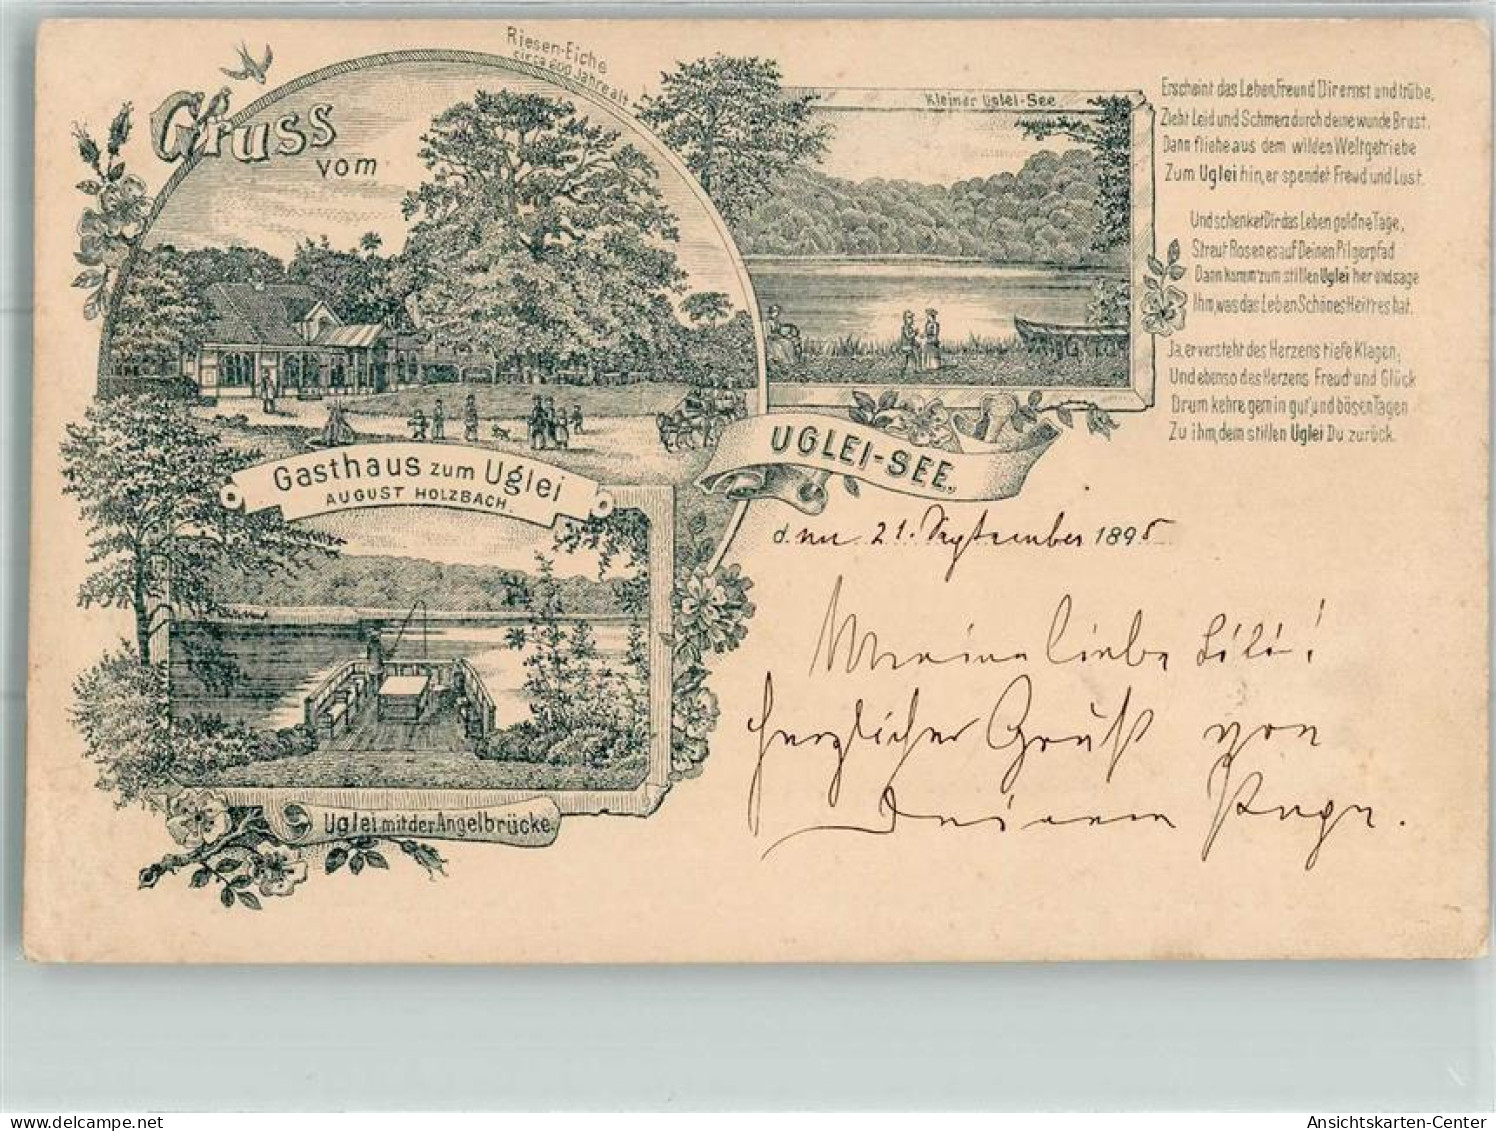 Gruss
vom
Riesen-Eiche
circa 600 Jahre alt
Kleiner Uglei-See
Erscheint das Leben, Freund Dir ernst und trübe,
Zieht Leid und Schmerz durch deine wunde Brust.
Dann fliehe aus dem wilden Weltgetriebe
Zum Uglei hin, er spendet Freud und Lust.
Und schenket Dir das Leben gold'ne Tage,
Streut Rosen es auf Deinen Pilgerpfad
Dann komm zum stillen Uglei her und sage
Ihm, was das Leben Schönes Heitres hat.
Ja, er versteht des Herzens tiefe Klagen,
Und ebenso des Herzens Freud' und Glück
Drum kehre gern in gut' und bösen Tagen
Zu ihm, dem stillen Uglei Du zurück.
UGLEI-SEE.
Gasthaus zum Uglei
AUGUST HOLZBACH.
Uglei mit der Angelbrücke.
den 21. September 1895
Meine liebe Lili!
Herzlichen Gruß von
Deinem
Ansichtskarten-Center